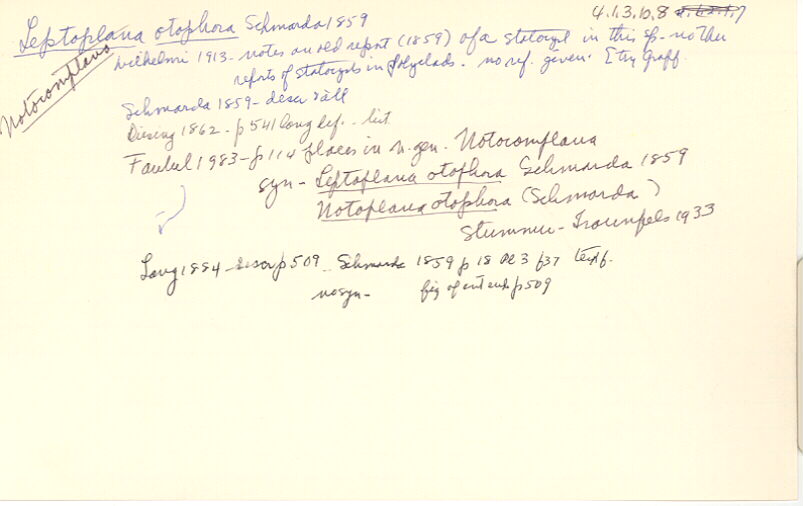 Leptoplana otophora Schmarda 1859
4.1.3.10.8
Notocomplana
Wilhelmi 1913 - notes an old report (1859) of a statocyst in this sp. - no other
reports of statocysts in polyclads. no ref. given. [try Graff.
Schmarda 1859 - descr
Diesing 1862 - p 541 long def. - lit
Faubel 1983 - p 114 places in n. gen. Notocomplana
syn - Leptoplana otophora Schmarda 1859
Notoplana otophora (Schmarda)
Stummer-Traunfels 1933
Lang 1884 - descr p 509 Schmarda 1859 p 18 Pl 3 f 37 textf.
no syn - fig of ant end p 509